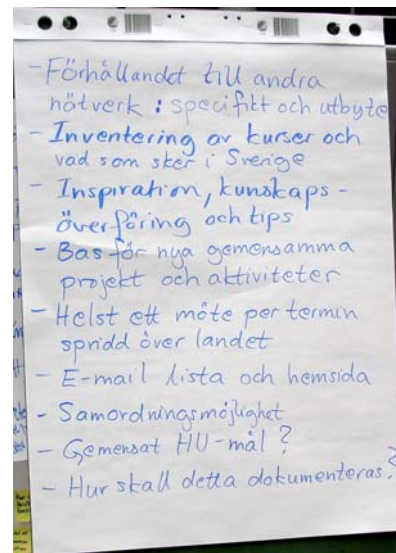 - Förhållandet till andra
nötverk : specifikt och utbyte
- Inventering av kurser och
vad som sker i Sverige
- Inspiration, kunskaps-
överföring och tips
- Bas för nya gemensamma
projekt och aktiviteter
- Helst ett möte per termin
spridd över landet
- E-mail lista och hemsida
- Samordningsmöjlighet
- Gemensat HU-mål ?
- Hur skall detta dokumenteras ?